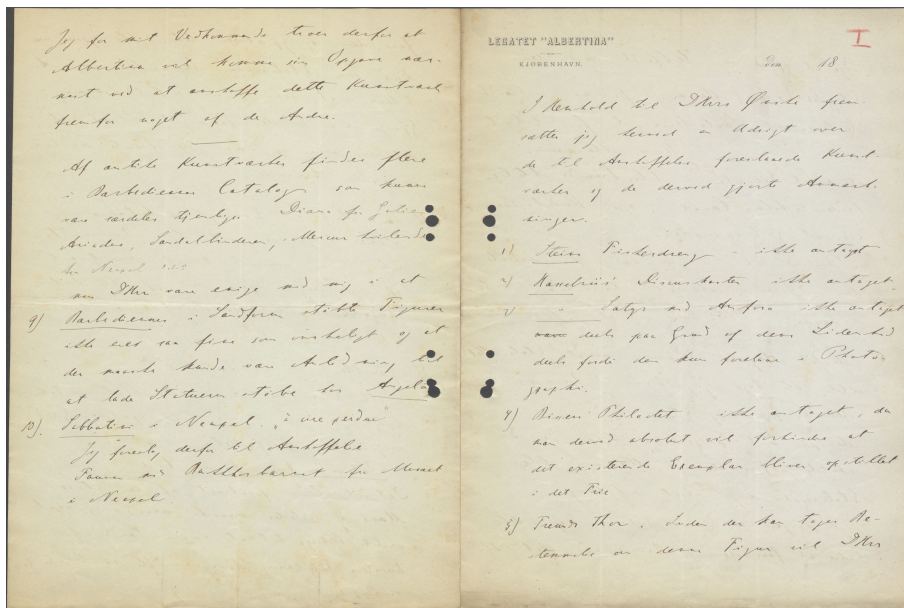 Jeg for mit Vedkommende troer derfor at
Albertina vil komme sin Opgave nær-
mest ved at anskaffe dette Kunstværk
fremfor noget af de Andre.
Af antike Kunstværker findes flere
i Barbediennes Catalog som kunne
være særdeles tjenlige Diana fra Gabii
Ariadne, Sandalbinderen, Mercur hvilende
fra Neapel
men DHrr være enige med mig i at
9) Barbediennes i Sandform støbte Figurer
ikke ere saa fine som ønskeligt og at
der maaske kunde være Anledning til
at lade Statuerne støbe hos Angelo
10). Sabbatino i Neapel "à cire perdue"
Jeg foreslog derfor til Anskaffelse
Faunen med Bakkhosbarnet fra Museet
i Neapel
LEGATET "ALBERTINA"
KJØBENHAVN.
den 18
I
I Henhold til DHrrs Ønske frem
sætter jeg herved en Udsigt over
de til Anskaffelse foreslaaede Kunst-
værker og de derved gjorte Anmærk-
ninger.
1) Steins Fiskerdreng - ikke antaget
2) Hasselriis' Discuskaster ikke antaget
3) " Satyr med Amfora ikke antaget
deels paa Grund af dens
deels fordi den kun forelaae i Photo-
graphi.
4) Philoctet ikke antaget, da
man derved absolut vil forhindre at
det existerende Exemplar bliver opstillet
i det Frie
5) Freunds Thor. Inden der kan tages Be-
stemmelse om denne Figur vil DHrr